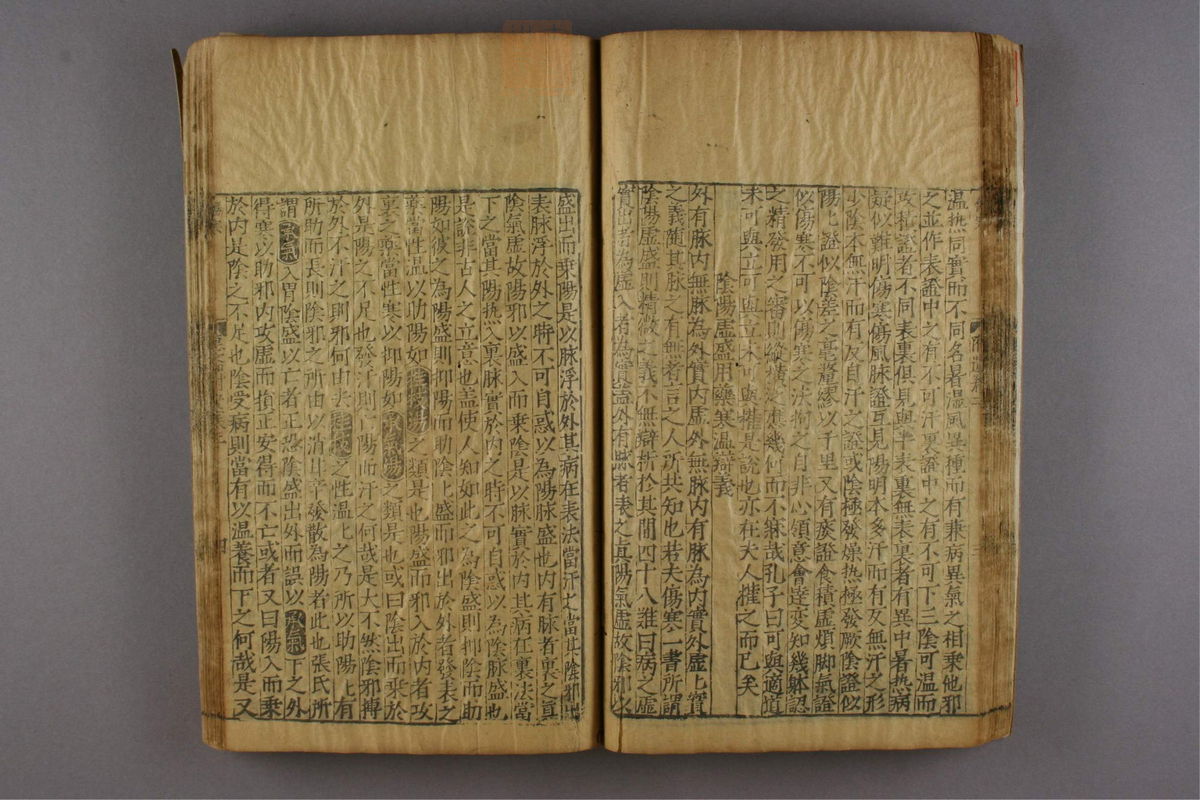 温热同實而不同名暑湿風異種而有兼病異氣之相乘他邪
之並作表證中之有不可汗裏證中之有不可下三陰可温而
證者不同表裏俱見與半表裏無表裏者有異中暑热病
疑似難明傷寒傷風脉證互見陽明本多汗而有反無汗之形
少陰本無汗而有反自汗之證或陰極發燥热極發厥陰證似
陽上證似陰差之毫釐繆以千里又有痰證食積虚煩脚氣證
似傷寒不可以傷寒之法拘之自非心領意會達变知幾躰認
之精發用之審則縱横之應幾何而不麻哉孔子曰可與適道
未可與立可與立未可與權是說也亦在夫人權之而已矣
陰陽虚盛用藥寒温辯義
外有脉内無脉為外實内虚外無脉内有脉為内實外虚上實
之義随其脉之有無者言之人所共知也若夫傷寒一書所謂
陰陽虚盛則精微之義不無辯析於其間四十八难曰病之虚
實出者為虚入者為實蓋外有脉者表之真陽氣虚故陰邪以
盛出而乘陽是以脉浮於外其病在表法當汗之當其陰邪出
表脉浮於外之時不可自惑以為陽脉盛也内有脉者裏之真
陰氣虚故陽邪以盛入而乘陰是以脉實於内其病在裏法當
下之當其陽热入裏脉實於内之時不可自惑以為陰脉盛也
是說非古人之立意也盖使人知如此之為陰盛則抑陰而助
陽如彼之為陽盛則抑陽而助陰上盛而邪出於外者發表之
藥當性温以助陽如桂枝湯之類是也陽盛而邪入於内者攻
裏之藥當性寒以抑陽如承氣湯之類是也或曰陰出而乘於
外是陽之不足也發汗則亡陽而汗之何哉是大不然陰邪搏
於外不汗之則邪何由去桂枝之性温上之乃所以助陽上有
所助而長則陰邪之所由以消耳辛發散為陽者此也張氏所
謂承氣入胃陰盛以亡者正恐陰盛出外而誤以承氣下之外
得寒以助邪内攻虚而損正安得而不亡或者又曰陽入而乘
於内是陰之不足也陰受病則當有以温養而下之何哉是又